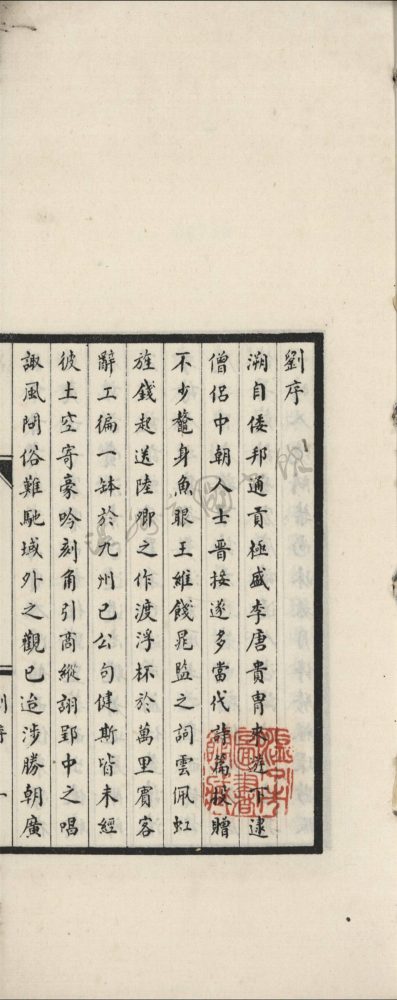 劉序
溯自倭邦通貢極盛李唐貴胄來遊下逮
僧侶中朝人士晋接遂多當代詩篇投贈
不少鼇身魚眼王維餞晁監之詞雲佩虹
旌錢起送陸卿之作渡浮杯於萬里賓客
辭工傳一鉢於九州已公句健斯皆未經
彼土空寄豪吟刻角引商縱詡郢中之唱
諏風問俗難馳域外之觀已迨涉勝朝廣
劉序
一